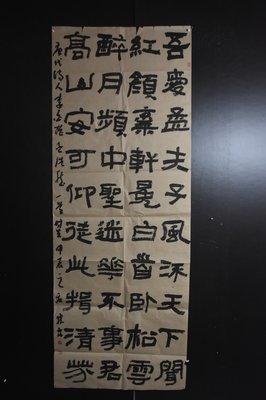 吾愛孟夫子風流天下聞
紅顏棄軒冕白首臥松雲
醉月頻中聖迷花不事君
高山安可仰徒此揖清芬
唐代詩人李白